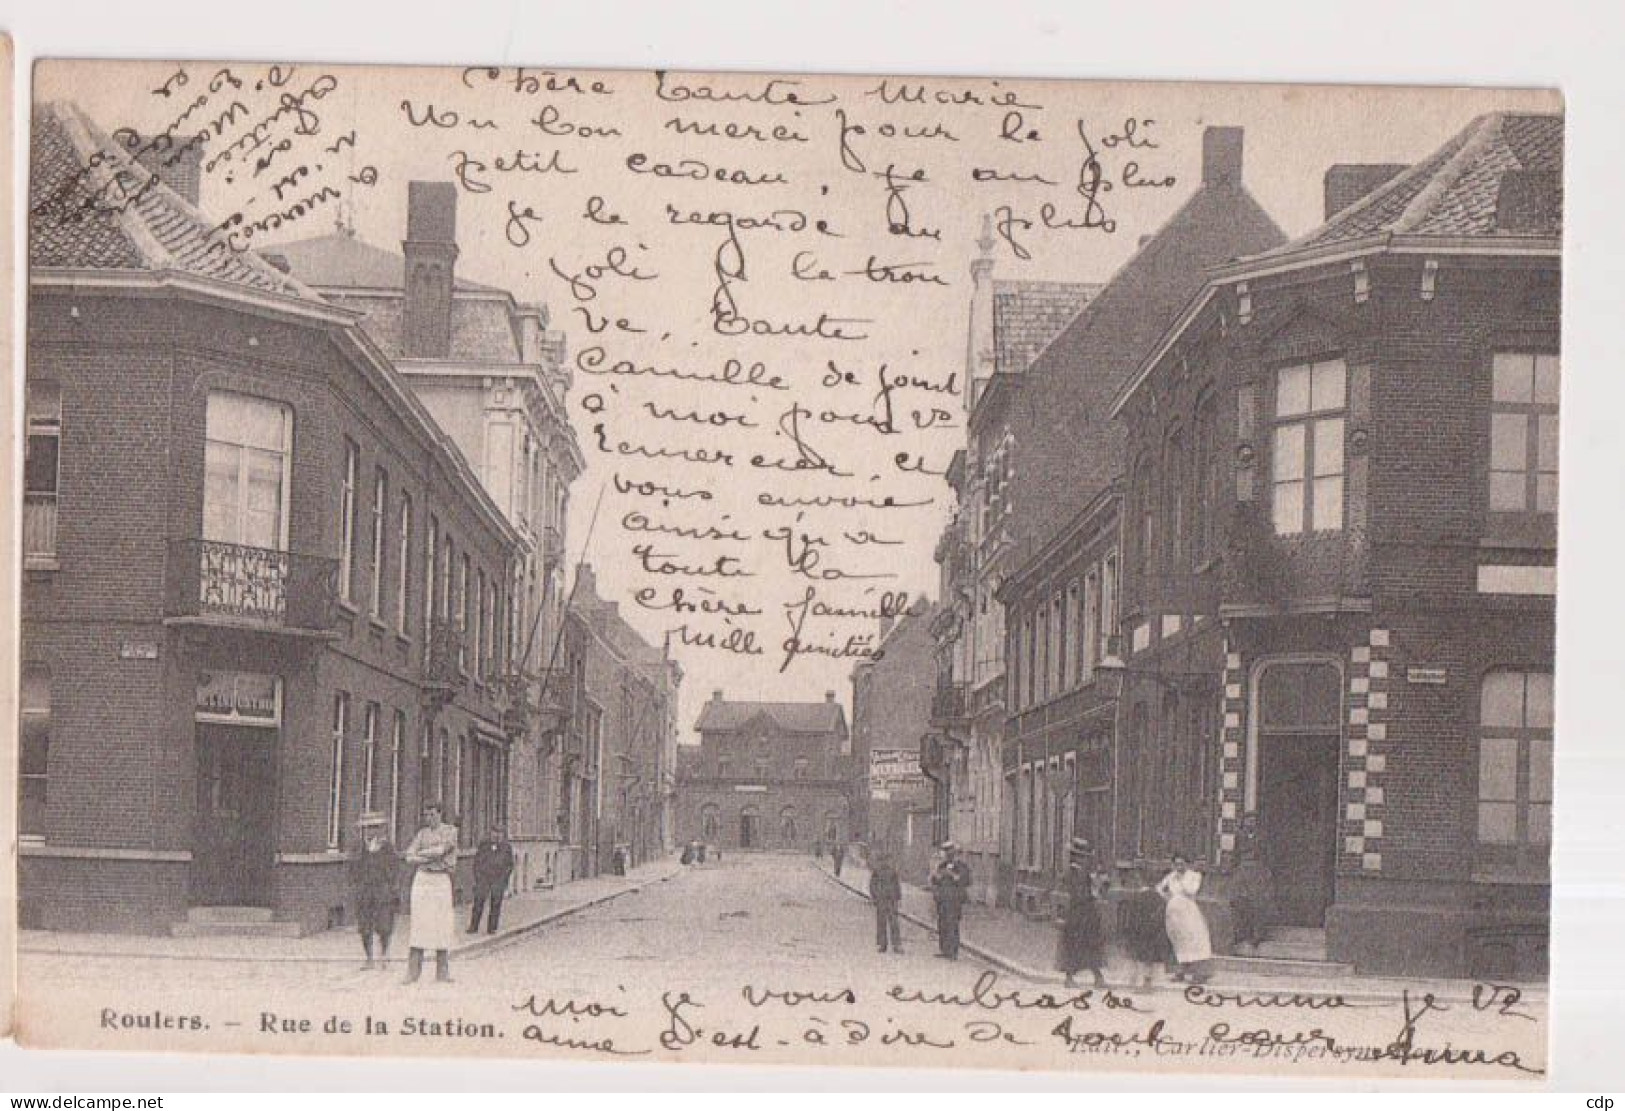 Chère Tante Marie
Un bon merci pour le joli
petit cadeau, je au plus
je le regarde au plus
joli je le trou
ve, Tante
Camille se joint
à moi pour vs
remercier et
vous envoie
ainsi qu'a
toute la
chère famille
mille amitiés
moi je vous embrasse comme je vs
aime c'est-à-dire de tout cœur
Anna
Roulers. — Rue de la Station.
Edit., Carlier-Dispersyn